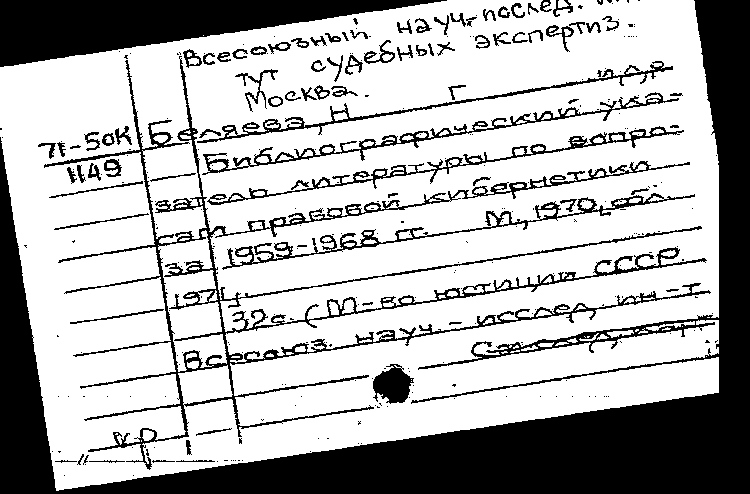 Всесоюзный науч.-послед. ин-
тут судебных экспертиз.
Москва.
71-50К
1149
Беляева, Н Г и др
Библиографический ука-
затель литературы по вопро-
сам правовой кибернетики
за 1959-1968 гг. М., 1970, обл.
1971г.
32с. (М-во юстиции СССР
Всесоюз. науч.-исслед. ин-т
См след. карт
кр